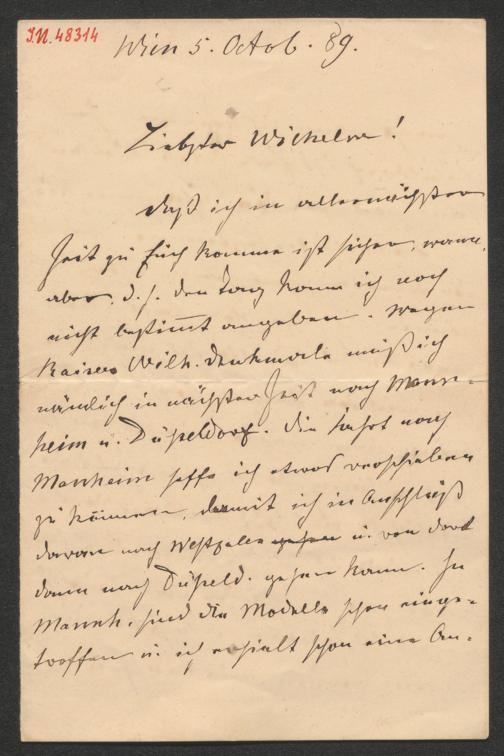 I.N. 48314
Wien 5. Octob. 89.
Liebster Wilhelm!
Daß ich in allernächster
Zeit zu Euch komme ist sicher, wann
aber, d. h. den Tag kann ich noch
nicht bestimt angeben. Wegen
Kaiser Wilh. Denkmale muß ich
nämlich in nächster Zeit nach Mann-
heim u. Düsseldorf. Die Fahrt nach
Manheim hoffe ich etwas verschieben
zu können, damit ich in Anschluß
daran nach Westfalen gehen u. von dort
dann nach Düsseld. gehen kann. In
Mannh. sind die Modelle schon einge-
troffen u. ich erhielt schon eine An-